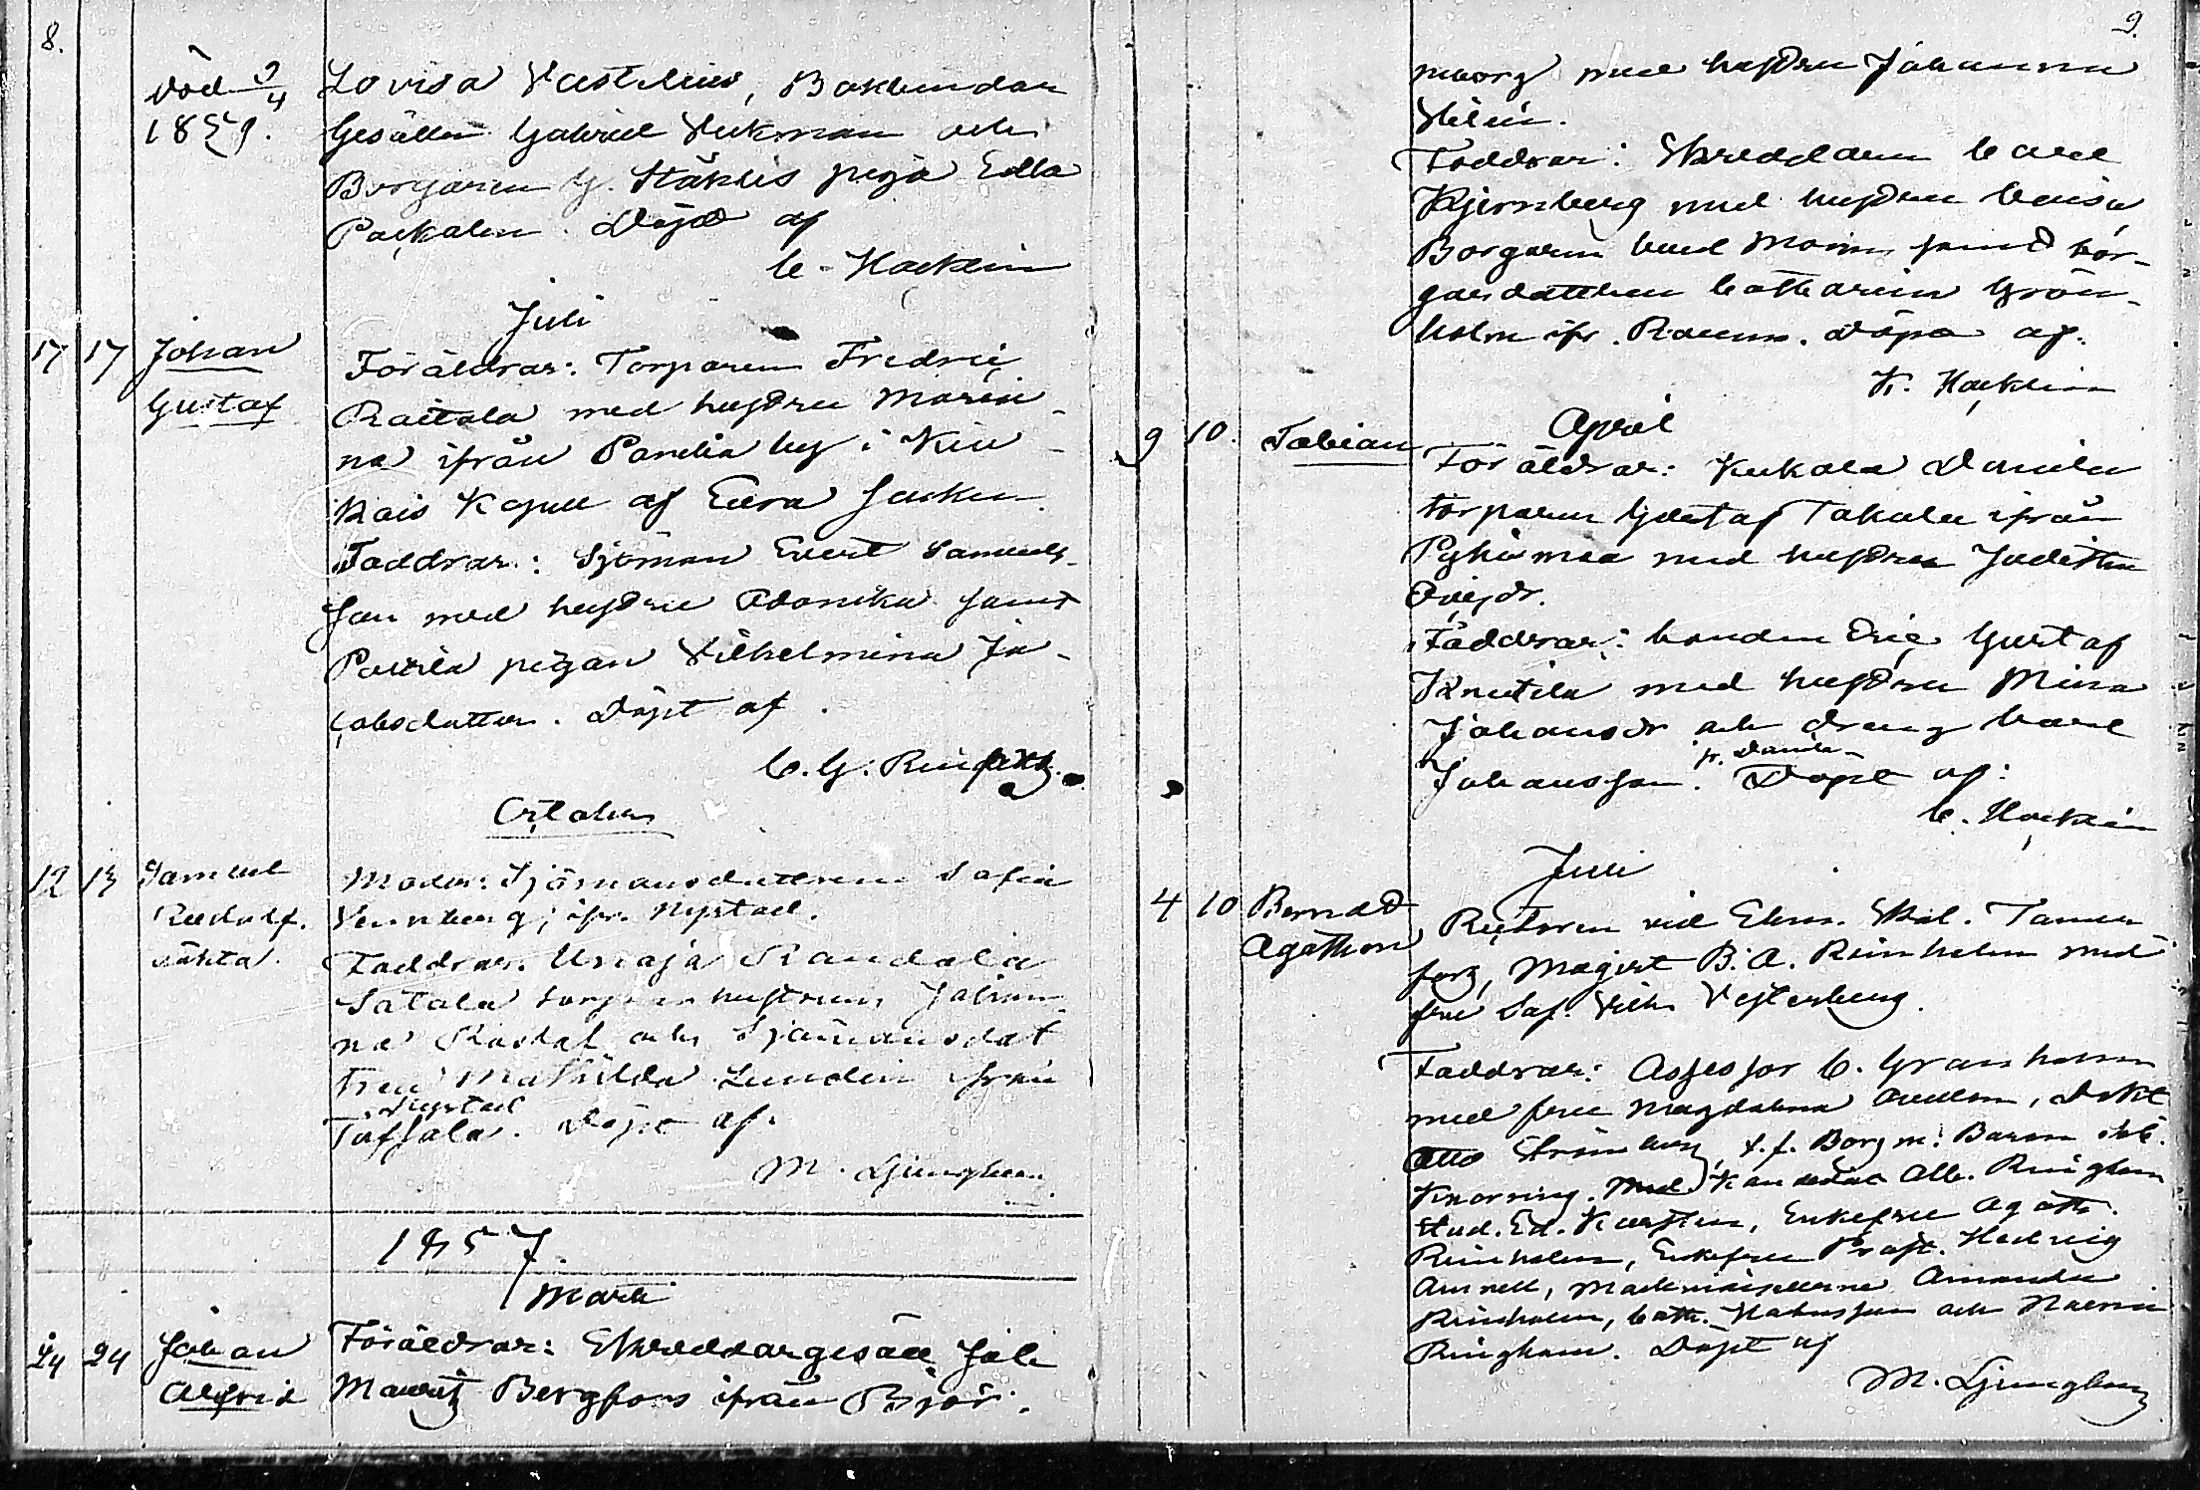 8.
död 9/4
1859.
Lovisa Vastelius, Bokbindar
Gesällen Gabriel Vickman och
Borgaren G. Ståhlis piga Edla
Packalen. Döpt af
C. Hacklin
Juli
17 17 Johan
Gustaf
Föräldrar: Torparen Fredric
Raitala med hustru Maria
na ifrån Panelia by i Kiu
kais Kapell af Eura Socken.
Faddrar: Sjöman Evert Samuels-
son med hustru Adonika samt
Pavila pigan Vilhelmina Ja-
cobsdotter. Döpt af
C. G.
October
12 13 Samuel
Rudolf.
oäkta.
Moder: Sjömansdottren Sofia
Vennberg, ifr. Nystad.
Faddrar.
Satala torpare hustrun Johan
na och Sjömansdot
tren Mathilda Lundin från
Nystad
Döpt af.
M. Ljungberg
1857.
Marti
24 24 Johan
Alfrid
Föräldrar: Skreddargesäll Joh
Mauritz Bergfors ifrån Björ.
9.
neborg med hustru Johanna
Faddrar: Skreddaren Carl
Kjernberg med hustru Caisa
Borgaren Carl Monn samt bor-
gardottren Catharina Grön-
holm ifr. Raumo. Döpt af.
K. Hacklin
April
9 10. Fabian
Föräldrar: Kukola Daniela
torparen Gustaf Takala ifrån
Pyhämaa med hustru Judith
Faddrar: bonden Eric Gustaf
Knutila med hustru Mina
Johansdr och dräng Carl
fr. Daniela
Johansson. Döpt af:
C. Hacklin
Juli
4 10 Berndt
Agathon
Rectoren vid Elem. Skol. Tammer
fors, Magist B. A. Reinholm med
fru Sof. Vilh. Vesterberg.
Faddrar: Assessor C. Granholm
med fru Magdalena Avellan, Dokt
Otto Strömberg, t. f. Borgm: Baron
Knorring. Med. Kandidat Alb. Ringbom
Stud. Ed. Karsten, Enkefru Agath.
Reinholm, Enkefru Prost. Hedvig
Arnell, Mademoisellerne Amanda
Reinholm, Cath. och Naemi
Ringbom. Döpt af
M. Ljungberg